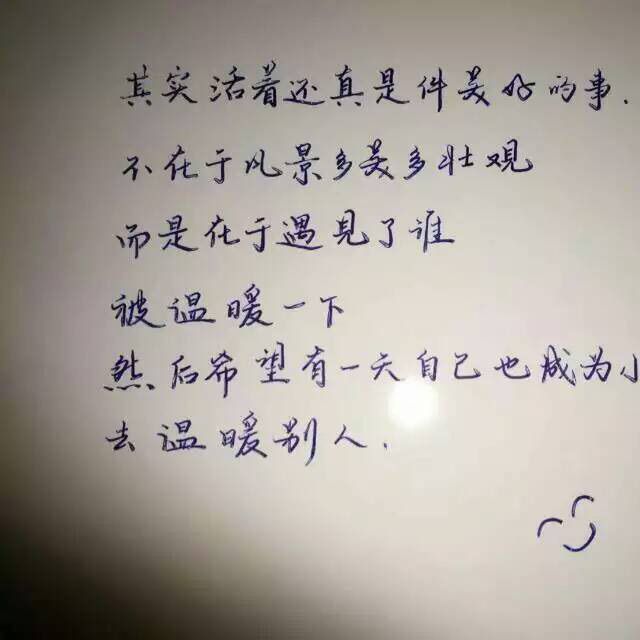 其实活着还真是件美好的事.
不在于风景多美多壮观
而是在于遇见了谁
被温暖一下
然后希望有一天自己也成为小
去温暖别人.